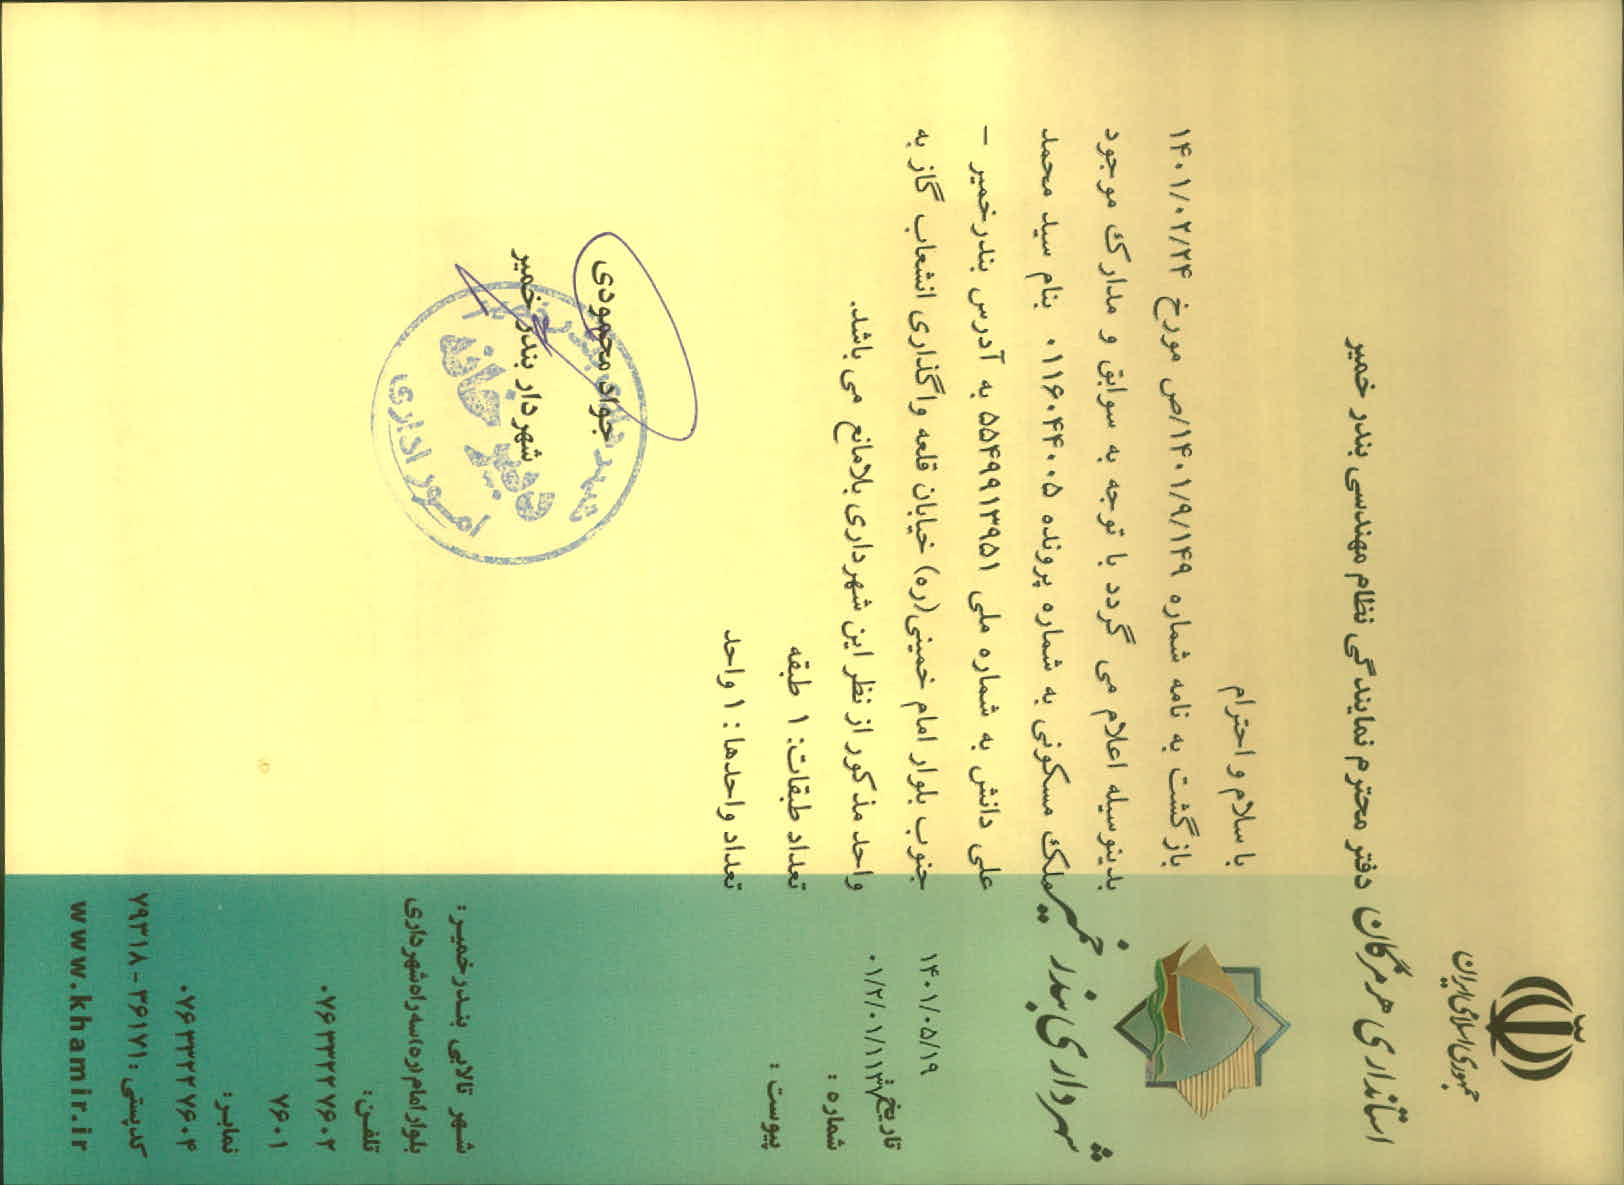 جمهوری اسلامی ایران
استانداری هرمزگان
شهرداری بندر خمیر
۱۴۰۱/۰۵/۱۹
۰۱/۲/۰۱/۱۱۳
تاریخ:
شماره :
پیوست :
دفتر محترم نمایندگی نظام مهندسی بندر خمیر
با سلام و احترام
بازگشت به نامه شماره ۱۴۰۱/۹/۱۴۹/ص مورخ ۱۴۰۱/۰۲/۲۴
بدینوسیله اعلام می گردد با توجه به سوابق و مدارک موجود
ملک مسکونی به شماره پرونده ۰۱۱۶۰۴۴۰۰۵ بنام سید محمد
علی دانش به شماره ملی ۵۵۴۹۹۱۳۹۵۱ به آدرس بندرخمیر -
جنوب بلوار امام خمینی(ره) خیابان قلعه واگذاری انشعاب گاز به
واحد مذکور از نظر این شهرداری بلامانع می باشد.
تعداد طبقات: ۱ طبقه
تعداد واحدها : ۱ واحد
جواد محمودی
شهردار بندر خمیر
دبیرخانه
امور اداری
شهر تالابی بندرخمیر :
بلوار امام (ره) سه راه شهرداری
تلفن:
۰۷۶۳۳۳۲۷۶۰۲
۷۶۰۱
نمابر:
۰۷۶۳۳۳۲۷۶۰۴
کدپستی : ۳۶۱۷۱ - ۷۹۳۱۸
www.khamir.ir